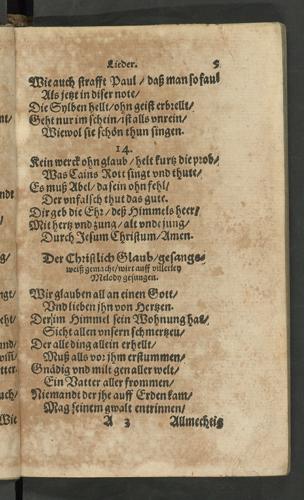 Lieder. 5
Wie auch strafft Paul / daß man so faul
Als jetzt in diser note /
Die Sylben hellt / ohn geist erzellt /
Geht nur im schein / ist alls vnrein /
Wiewol sie schön thun singen.
14.
Kein werck ohn glaub / helt kurtz die prob /
Was Cains Rott singt vnd thute /
Es muß Abel / da sein ohn fehl /
Der vnfalsch thut das gute.
Dir geb die Ehr / deß Himmels heer /
Mit hertz vnd zung / alt vnd jung /
Durch Jesum Christum / Amen.
Der Christlich Glaub / gesangs-
weiß gemacht / wirt auff villerley
Melody gesungen.
Wir glauben all an einen Gott /
Vnd lieben jhn von Hertzen.
Der im Himmel sein Wohnung hat /
Sicht allen vnsern schmertzen /
Der alle ding allein erhellt /
Muß alls vor jhm erstummen /
Gnädig vnd milt gen aller welt /
Ein Vatter aller frommen /
Niemandt der jhe auff Erden kam /
Mag seinem gwalt entrinnen /
A 3 Allmechtig